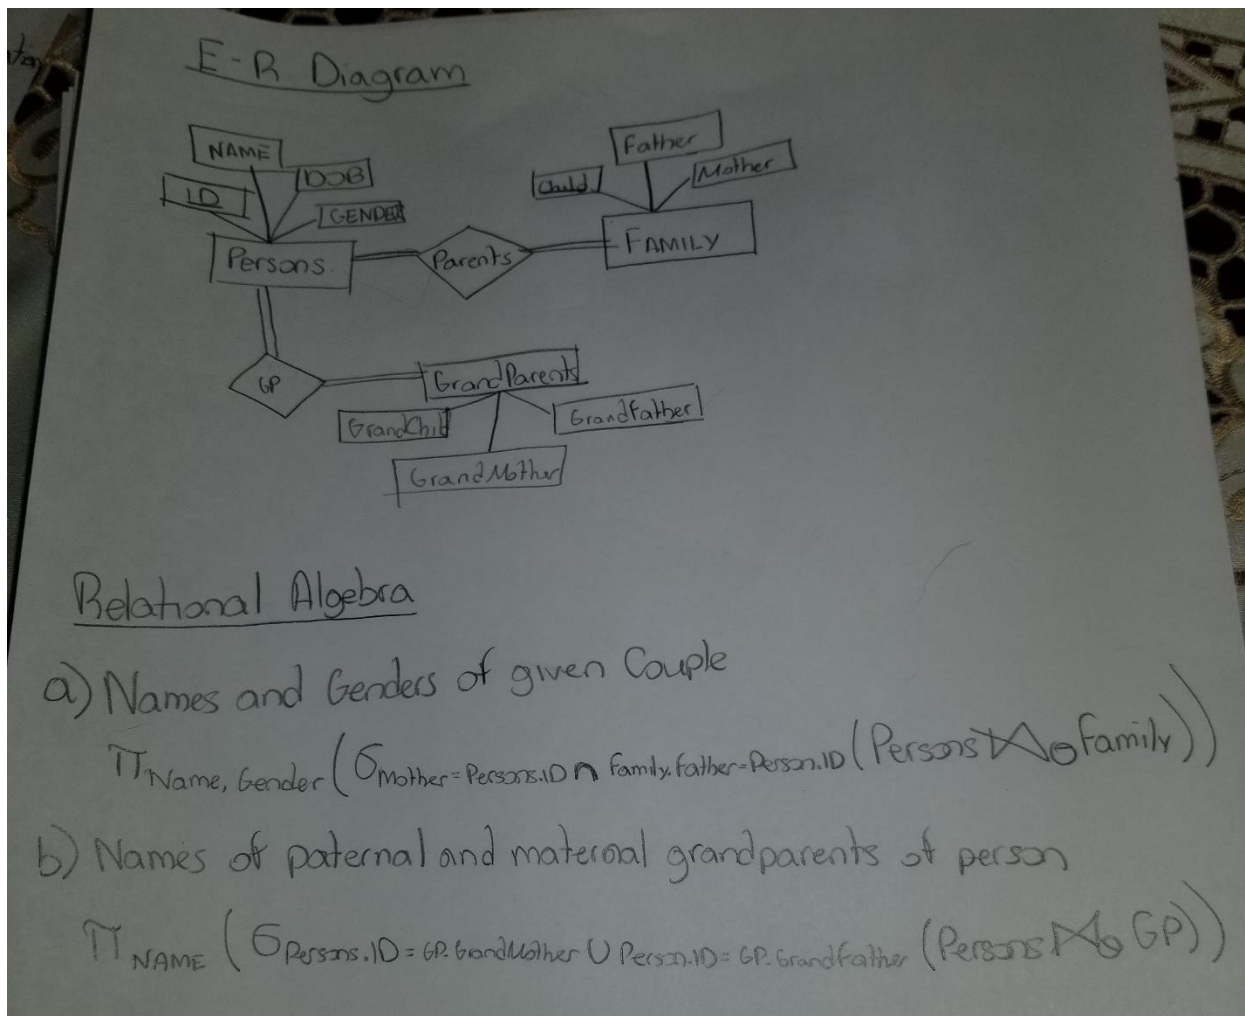 E-R Diagram
NAME
DOB
ID
GENDER
Persons
Parents
Father
Child
Mother
FAMILY
GP
GrandParents
GrandChil
GrandFather
GrandMother
Relational Algebra
a) Names and Genders of given Couple
π Name, Gender (σ Mother = Persons.ID ∩ Family.Father = Person.ID (Persons ⋈θ Family))
b) Names of paternal and maternal grandparents of person
π NAME (σ Persons.ID = GP.GrandMother ∪ Person.ID = GP.GrandFather (Persons ⋈θ GP))